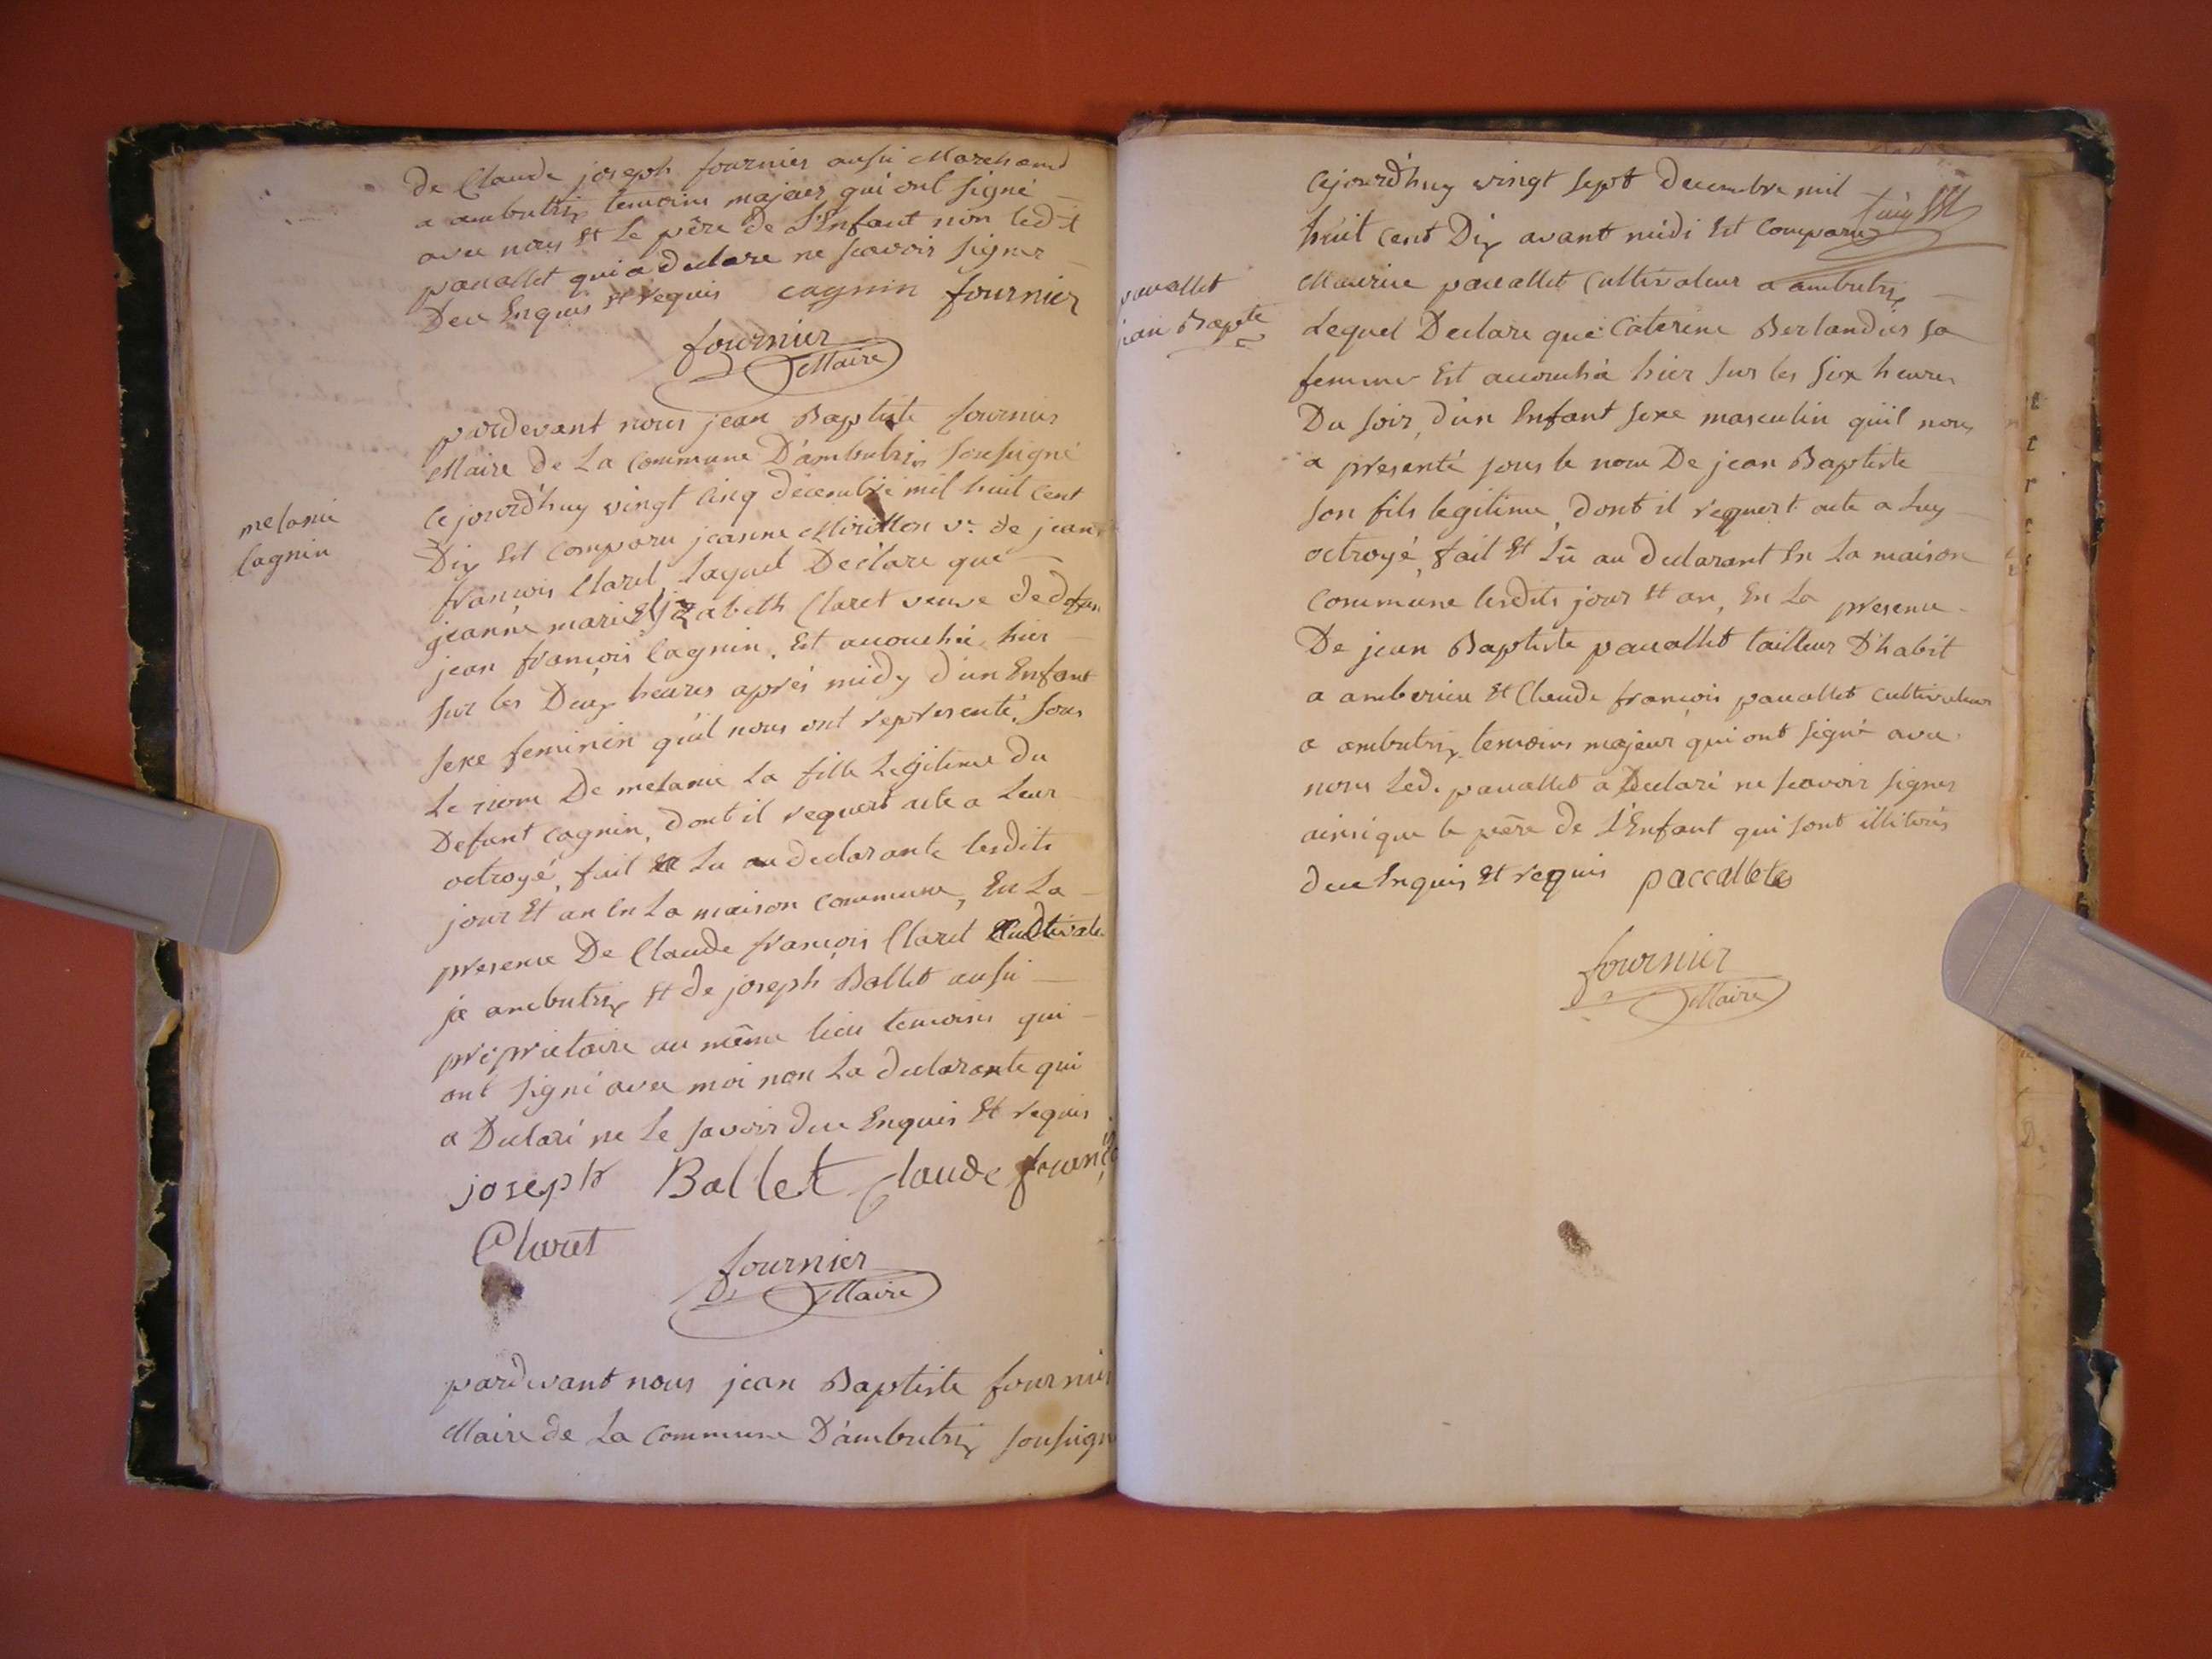 de Claude joseph fournier aussi Marchand
a ambutrix temoins majeur qui ont signé
avec nous Et Le père de L'Enfant non led-t
pacallet qui a declare ne scavoir signer
Deu Enquis Et requis cagnin fournier
fournier
Maire
melanie
Cagnin
pardevant nous jean Baptiste fournier
Maire de La Commune D'ambutrix soussigné
Cejourd'huy vingt Cinq decembre mil huit Cent
Dix Est Comparu jeanne ve. de jean
françois Claret, Laquel Declare que
jeanne marie Elizabeth Claret veuve de
jean françois Cagnin, Est accouchée hier
sur les Deux heures aprés midy d'un Enfant
sexe feminin qu'il nous ont representé, sous
Le nom De melanie La fille Legitime du
Defunt cagnin, dont il requert acte a Leur
octroyé, fait Et Lu au declarante lesdits
jour Et an En La maison Commune, En La
presence De Claude françois Claret
a ambutrix Et de joseph Ballet aussi
proprietaire au même lieu temoins qui
ont signé avec moi non La declarante qui
a Declaré ne Le savoir due Enquis Et requis
joseph Ballet Claude françois
Claret
fournier
Maire
pardevant nous jean Baptiste fournier
Maire de La Commune D'ambutrix soussigné
Cejourd'huy vingt sept decembre mil
huit Cent Dix avant midi Est Comparu
pacallet
jean Bapte
Maurice pacallet Cultivateur a ambutrix
Lequel Declare que Caterine Berlandier sa
femme Est accouchée hier sur les six heures
Du soir, d'un Enfant sexe masculin qu'il nous
a presenté sous le nom De jean Baptiste
son fils legitime, dont il requert acte a Luy
octroyé, fait Et Lû au declarant En La maison
Commune lesdits jour Et an, En La presence
De jean Baptiste pacallet tailleur D'habit
a amberieu Et Claude françois pacallet cultivateur
a ambutrix temoins majeur qui ont signé avec
nous Led. pacallet a Declaré ne scavoir signer
ainsi que le père de L'Enfant qui sont illiterés
due Enquis Et requis paccallet
fournier
Maire